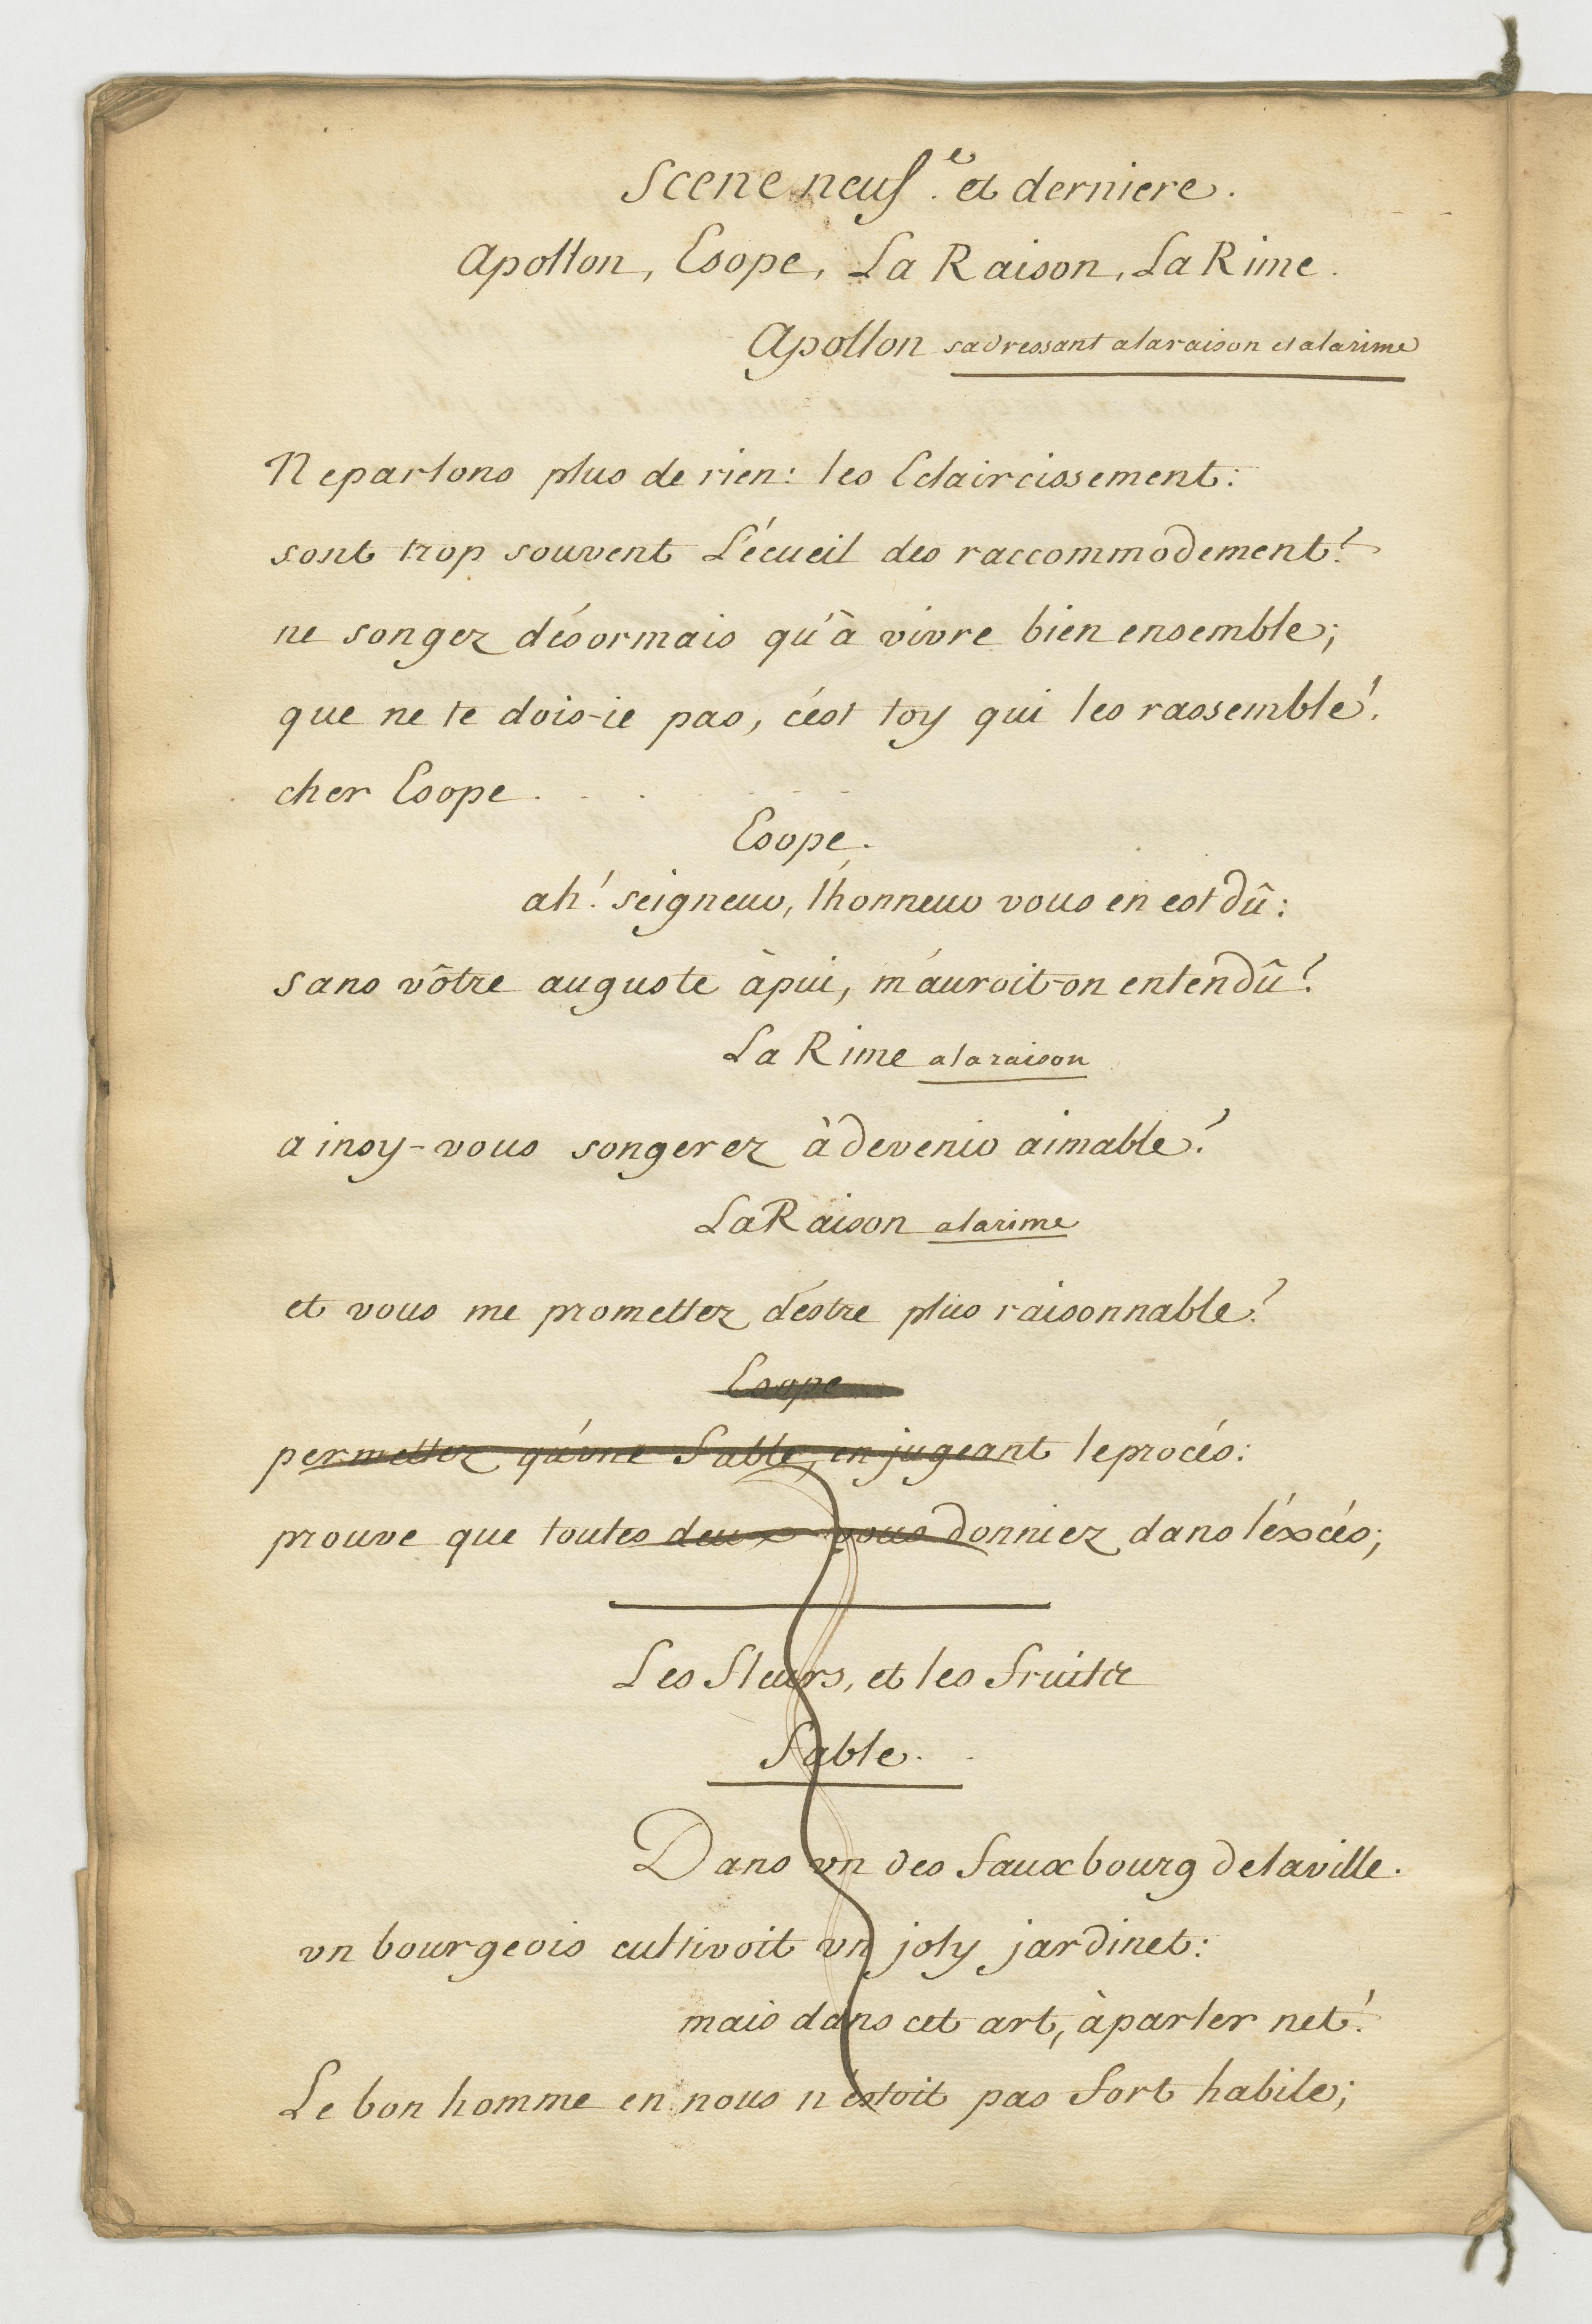 Scene neuf.e et derniere.
Apollon, Esope, La Raison, La Rime.
Apollon sadressant alaraison et alarime
Ne parlons plus de rien: les Eclaircissement:
sont trop souvent L'écueil des raccommodement!
ne songez désormais qu'à vivre bien ensemble;
que ne te dois-ie pas, c'est toy qui les rassemble!
cher Esope . . . . . .
Esope.
ah! seigneur, l'honneur vous en est dû:
sans vôtre auguste àpui, m'auroit-on entendû?
La Rime alaraison
ainsy-vous songerez à devenir aimable?
La Raison alarime
et vous me promettez d'estre plus raisonnable?
Esope
permettez qu'une fable, en jugeant le procés:
prouve que toutes deux vous donniez dans l'éxcés;
Les fleurs, et les fruits
fable.
Dans vn des fauxbourg de la ville.
vn bourgeois cultivoit vn joly jardinet:
mais dans cet art, à parler net!
Le bon homme en nous n'estoit pas fort habile;